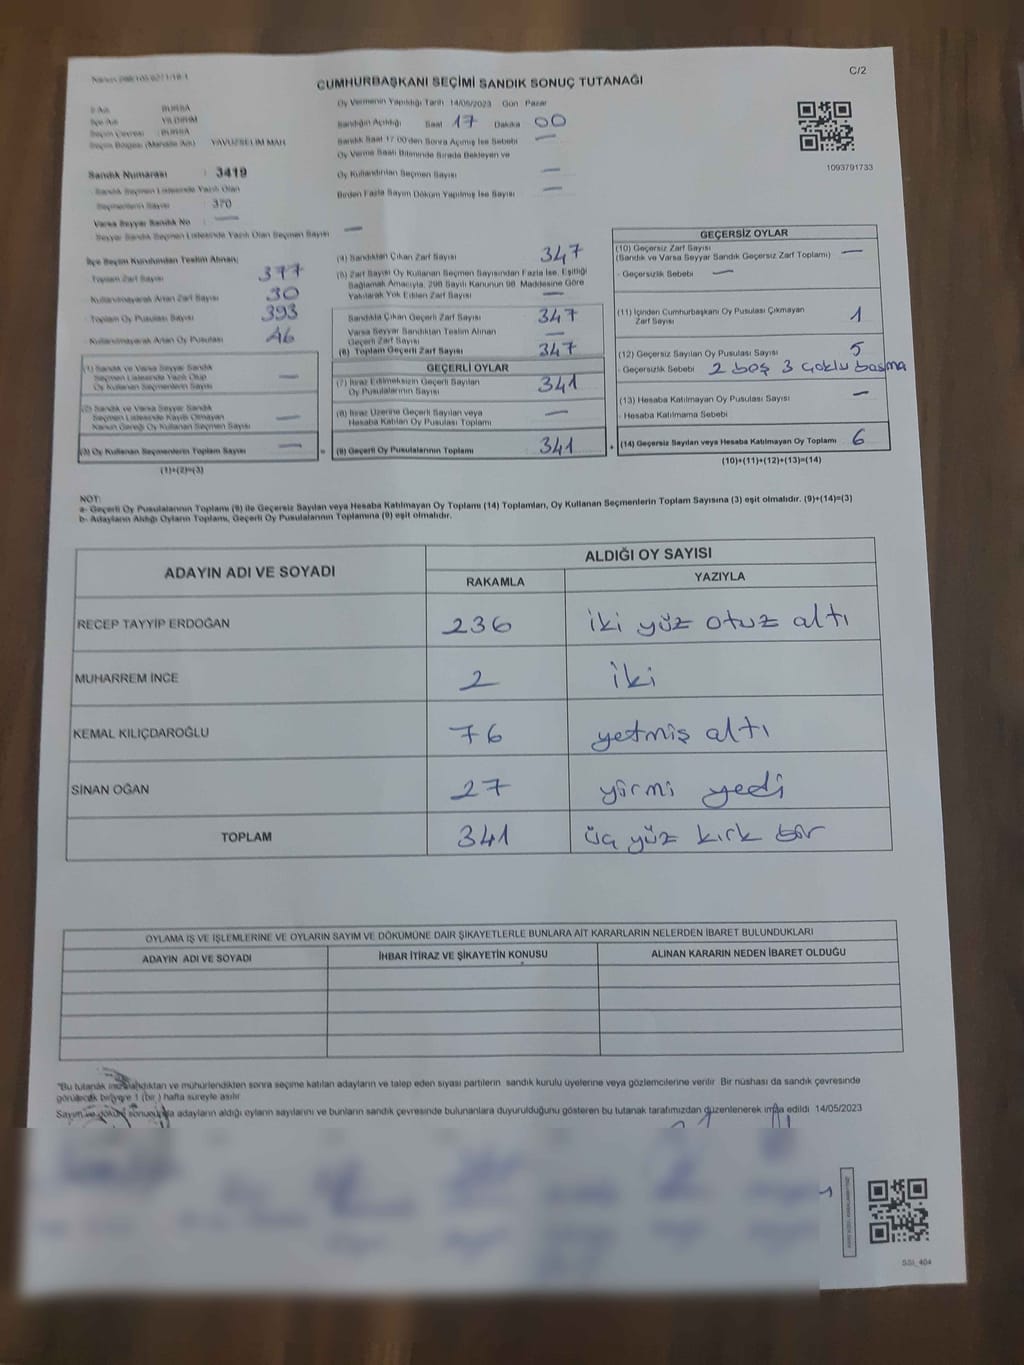 CUMHURBAŞKANI SEÇİMİ SANDIK SONUÇ TUTANAĞI
C/2
İl Adı : BURSA
İlçe Adı : YILDIRIM
Seçim Çevresi : BURSA
Seçim Bölgesi (Mahalle Adı) YAVUZSELİM MAH
Sandık Numarası : 3419
Sandık Seçmen Listesinde Yazılı Olan
Seçmenlerin Sayısı : 370
Varsa Seyyar Sandık No : —
Seyyar Sandık Seçmen Listesinde Yazılı Olan Seçmen Sayısı —
Oy Vermenin Yapıldığı Tarih 14/05/2023 Gün Pazar
Sandığın Açıldığı Saat 17 Dakika 00
Sandık Saat 17:00'den Sonra Açılmış İse Sebebi —
Oy Verme Saati Bitiminde Sırada Bekleyen ve
Oy Kullandırılan Seçmen Sayısı —
Birden Fazla Sayım Döküm Yapılmış İse Sayısı —
1093791733
İlçe Seçim Kurulundan Teslim Alınan;
Toplam Zarf Sayısı 377
Kullanılmayarak Artan Zarf Sayısı 30
Toplam Oy Pusulası Sayısı 393
Kullanılmayarak Artan Oy Pusulası 46
(1) Sandık ve Varsa Seyyar Sandık
Seçmen Listesinde Yazılı Olup
Oy Kullanan Seçmenlerin Sayısı —
(2) Sandık ve Varsa Seyyar Sandık
Seçmen Listesinde Kayıtlı Olmayan
Kanun Gereği Oy Kullanan Seçmen Sayısı —
(3) Oy Kullanan Seçmenlerin Toplam Sayısı —
(1)+(2)=(3)
(4) Sandıktan Çıkan Zarf Sayısı 347
(5) Zarf Sayısı Oy Kullanan Seçmen Sayısından Fazla İse, Eşitliği
Sağlamak Amacıyla, 298 Sayılı Kanunun 98. Maddesine Göre
Yakılarak Yok Edilen Zarf Sayısı —
Sandıkla Çıkan Geçerli Zarf Sayısı 347
Varsa Seyyar Sandıktan Teslim Alınan
Geçerli Zarf Sayısı —
(6) Toplam Geçerli Zarf Sayısı 347
GEÇERLİ OYLAR
(7) İtiraz Edilmeksizin Geçerli Sayılan
Oy Pusulalarının Sayısı 341
(8) İtiraz Üzerine Geçerli Sayılan veya
Hesaba Katılan Oy Pusulası Toplamı —
= (9) Geçerli Oy Pusulalarının Toplamı 341
GEÇERSİZ OYLAR
(10) Geçersiz Zarf Sayısı —
(Sandık ve Varsa Seyyar Sandık Geçersiz Zarf Toplamı)
- Geçersizlik Sebebi —
(11) İçinden Cumhurbaşkanı Oy Pusulası Çıkmayan
Zarf Sayısı 1
(12) Geçersiz Sayılan Oy Pusulası Sayısı 5
- Geçersizlik Sebebi 2 boş 3 çoklu basma
(13) Hesaba Katılmayan Oy Pusulası Sayısı —
- Hesaba Katılmama Sebebi
+ (14) Geçersiz Sayılan veya Hesaba Katılmayan Oy Toplamı 6
(10)+(11)+(12)+(13)=(14)
NOT:
a- Geçerli Oy Pusulalarının Toplamı (9) ile Geçersiz Sayılan veya Hesaba Katılmayan Oy Toplamı (14) Toplamları, Oy Kullanan Seçmenlerin Toplam Sayısına (3) eşit olmalıdır. (9)+(14)=(3)
b- Adayların Aldığı Oyların Toplamı, Geçerli Oy Pusulalarının Toplamına (9) eşit olmalıdır.
ADAYIN ADI VE SOYADI
ALDIĞI OY SAYISI
RAKAMLA YAZIYLA
RECEP TAYYİP ERDOĞAN 236 iki yüz otuz altı
MUHARREM İNCE 2 iki
KEMAL KILIÇDAROĞLU 76 yetmiş altı
SİNAN OĞAN 27 yirmi yedi
TOPLAM 341 üç yüz kırk bir
OYLAMA İŞ VE İŞLEMLERİNE VE OYLARIN SAYIM VE DÖKÜMÜNE DAİR ŞİKAYETLERLE BUNLARA AİT KARARLARIN NELERDEN İBARET BULUNDUKLARI
ADAYIN ADI VE SOYADI İHBAR İTİRAZ VE ŞİKAYETİN KONUSU ALINAN KARARIN NEDEN İBARET OLDUĞU
"Bu tutanak imzalandıktan ve mühürlendikten sonra seçime katılan adayların ve talep eden siyasi partilerin sandık kurulu üyelerine veya gözlemcilerine verilir. Bir nüshası da sandık çevresinde
görülecek bir yere 1 (bir) hafta süreyle asılır
Sayım ve döküm sonucunda adayların aldığı oyların sayılarını ve bunların sandık çevresinde bulunanlara duyurulduğunu gösteren bu tutanak tarafımızdan düzenlenerek imza edildi 14/05/2023
SSI_404